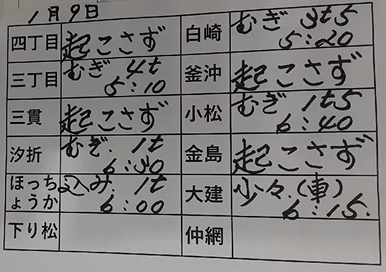 1月9日
四丁目 起こさず 白崎 むぎ 3t5
5:20
三丁目 むぎ 4t 釜沖 起こさず
5:10
三貫 起こさず 小松 むぎ 1t5
6:40
汐折 むぎ. 1t 金島 起こさず
6:30
ほっち 込み. 1t 大建 少々.(車)
ょうか 6:00 6:15.
下り松 仲網